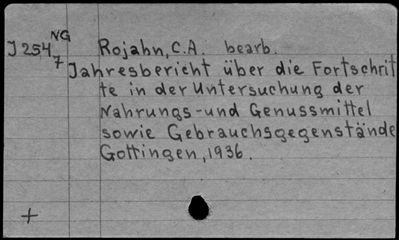 NG
J 254 Rojahn, C.A. bearb.
7 Jahresbericht über die Fortschrit
te in der Untersuchung der
Nahrungs- und Genussmittel
sowie Gebrauchsgegenstände
Gottingen, 1936.
+